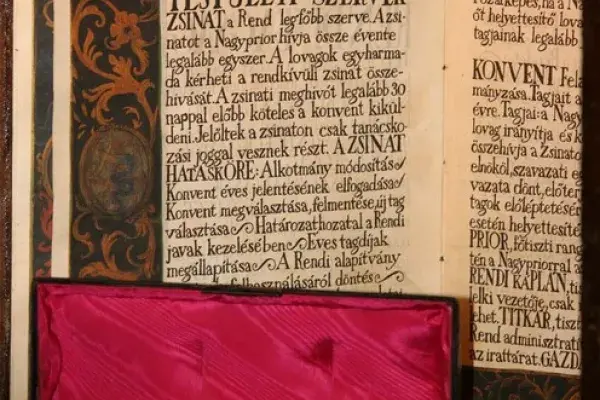 TESTÜLETI SZERVEK
ZSINAT a Rend legfőbb szerve. A zsi-
natot a Nagyprior hívja össze évente
legalább egyszer. A lovagok egyharma-
da kérheti a rendkívüli zsinat össze-
hívását. A zsinati meghívót legalább 30
nappal előbb köteles a konvent kikül-
deni. Jelöltek a zsinaton csak tanácsko-
zási joggal vesznek részt. A ZSINAT
HATÁSKÖRE: Alkotmány módosítás
Konvent éves jelentésének elfogadása
Konvent megválasztása, felmentése, új tag
választása Határozathozatal a Rendi
javak kezelésében Éves tagdíjak
megállapítása A Rendi alapítvány
felhasználásáról döntés
őt helyettesítő lova
tagjainak legalább
KONVENT Fela
mányzása. Tagjait a
évre. Tagjai: a Nagy
lovag irányítja és k
összehívja a Zsinato
elnököl, szavazati eg
vazata dönt, előter
tagok előléptetésér
esetén helyettesíte
PRIOR, főtiszti rang
tén a Nagypriorral a
RENDI KÁPLÁN, tis
lelki vezetője, csak
lehet. TITKÁR, tiszt
Rend adminisztráti
az irattárat. GAZD